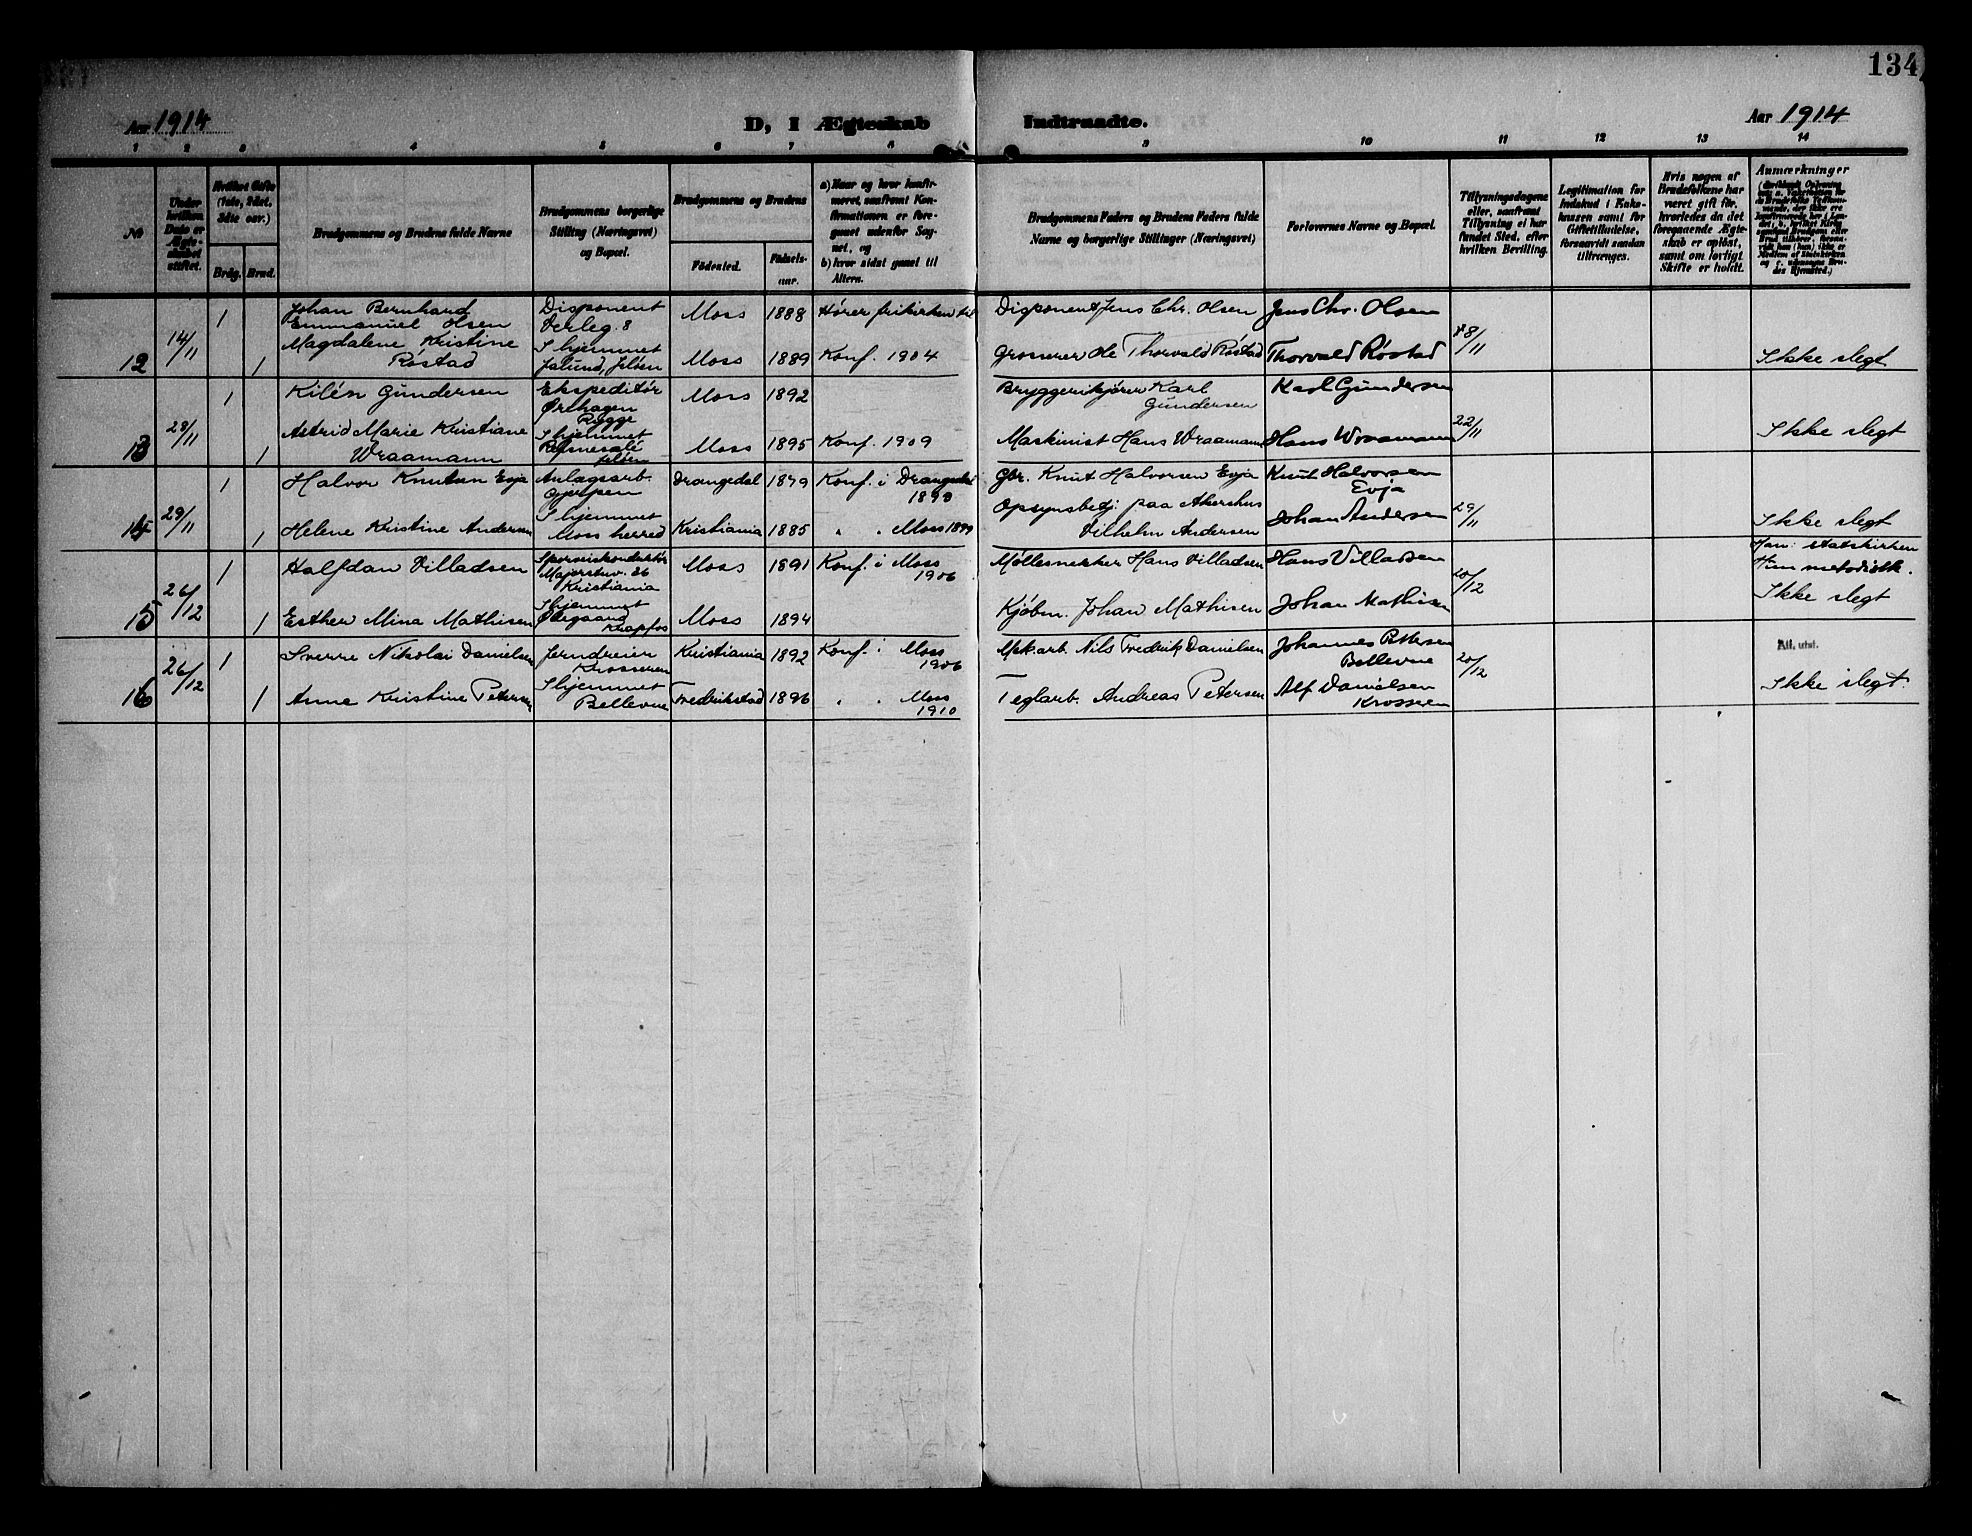 134
Aar 1914
D, I Ægteskab
Indtraadte.
Aar 1914
1 2 3 4 5 6 7 8 9 10 11 12 13 14
№
Under hvilken Dato er Ægteskabet stiftet.
Hvilket Gifte (1ste, 2det, 3die osv.)
Brdg.
Brud.
Brudgommens og Brudens fulde Navne
Brudgommens borgerlige Stilling (Næringsvei) og Bopæl.
Brudgommens og Brudens
Födested.
Födselsaar.
a) Naar og hvor konfirmeret, saafremt Konfirmationen er foregaaet udenfor Sognet, og
b) hvor sidst gaaet til Alters.
Brudgommens Faders og Brudens Faders fulde Navne og borgerlige Stillinger (Næringsvei)
Forlovernes Navne og Bopæl.
Tillysningsdagene eller, saafremt Tillysning ei har fundet Sted, efter hvilken Bevilling.
Legitimation for Indskud i Enkekassen samt for Giftetilladelse, forsaavidt saadan tiltrænges.
Hvis nogen af Brudefolkene har været gift før, hvorledes da det foregaaende Ægteskab er opløst, samt om lovligt Skifte er holdt.
Anmærkninger
12
14/11
1
Johan Bernhard
Emmanuel Olsen
Disponent
Verleg. 8
Moss
1888
Hører frikirken til
Disponent Jens Chr. Olsen
Jens Chr. Olsen
8/11
1
Magdalene Kristine
Røstad
I hjemmet
Jalund, Jeløen
Moss
1889
Konf. 1904
Grosserer Ole Thorvald Røstad
Thorvald Røstad
Ikke slegt
13
28/11
1
Kilén Gundersen
Ekspeditør
Ørehagen
Rygge
Moss
1892
Bryggerikjører Karl
Gundersen
Karl Gundersen
22/11
1
Astrid Marie Kristiane
Wraamann
I hjemmet
Refnesalé
Jeløen
Moss
1895
Konf. 1909
Maskinist Hans Wraamann
Hans Wraamann
Ikke slegt
14
29/11
1
Halvor Knutsen Evja
Anlagsarb.
Gjerpen
Drangedal
1879
Konf. i Drangedal
Gbr. Knut Halvorsen Evja
Knut Halvorsen
Evja
29/11
1
Helene Kristine Andersen
I hjemmet
Moss herred
Kristiania
1885
" " Moss 1899
Opsynsbetj. paa Akershus
Vilhelm Andersen
Johan Andersen
Ikke slegt
15
26/12
1
Halfdan Villadsen
Sporveiskonduktør
Majorstuv. 26
Kristiania
Moss
1891
Konf. i Moss
1906
Møllesnekker Hans Villadsen
Hans Villadsen
20/12
Han: statskirken
Hun metodistk.
1
Esther Mina Mathisen
I hjemmet
Ødegaard
Knapfos
Moss
1894
Kjøbm. Johan Mathisen
Johan Mathisen
Ikke slegt
16
26/12
1
Sverre Nikolai Danielsen
Jerndreier
Krosseren
Kristiania
1892
Konf. i Moss
1906
Mek arb. Nils Fredrik Danielsen
Johannes Pettersen
Bellevue
20/12
Att. utst.
1
Anne Kristine Petersen
I hjemmet
Bellevue
Fredrikstad
1896
" " Moss
1910
Teglarb. Andreas Petersen
Alf Danielsen
Krosseren
Ikke slegt.